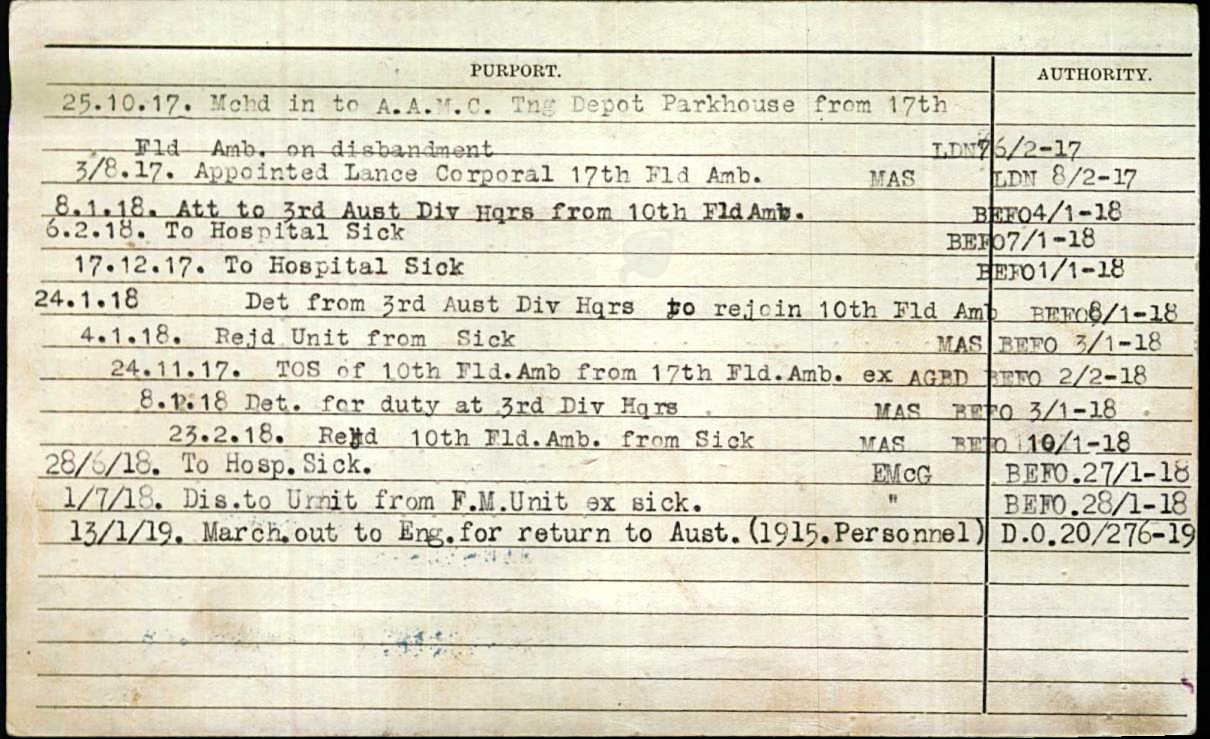 PURPORT. AUTHORITY.
25.10.17. Mchd in to A.A.M.C. Tng Depot Parkhouse from 17th
Fld Amb. on disbandment LDN76/2-17
3/8.17. Appointed Lance Corporal 17th Fld Amb. MAS LDN 8/2-17
8.1.18. Att to 3rd Aust Div Hqrs from 10th FldAmb. BEFO4/1-18
6.2.18. To Hospital Sick BEFO7/1-18
17.12.17. To Hospital Sick BEFO1/1-18
24.1.18 Det from 3rd Aust Div Hqrs to rejoin 10th Fld Amb BEFO8/1-18
4.1.18. Rejd Unit from Sick MAS BEFO 3/1-18
24.11.17. TOS of 10th Fld.Amb from 17th Fld.Amb. ex AGBD BEFO 2/2-18
8.1.18 Det. for duty at 3rd Div Hqrs . MAS BEFO 3/1-18
23.2.18. Rejd 10th Fld.Amb. from Sick MAS BEFO 10/1-18
28/6/18. To Hosp.Sick. EMcG BEFO.27/1-18
1/7/18. Dis.to Urnit from F.M.Unit ex sick. " BEFO.28/1-18
13/1/19. March.out to Eng.for return to Aust.(1915.Personnel) D.O.20/276-19